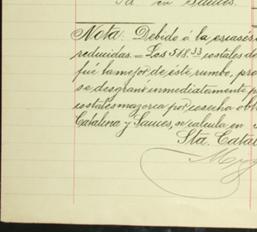 en Sauces.
Nota: Debido á la escasés
reducidas.= Los 518.33 costales de
fué la mejor de éste rumbo, pro
se desgranó inmediatamente p
costales mazorca por cosecha obt
Catalina y Sauces, se calcula en
Sta. Catal